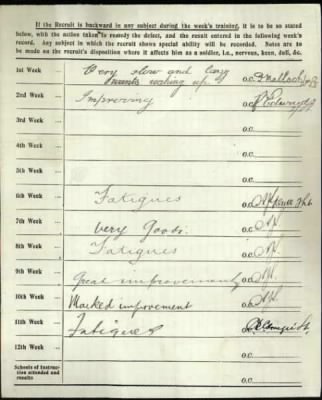 If the Recruit is backward in any subject during the week's training, it is to be so stated
below, with the action taken to remedy the defect, and the result entered in the following week's
record. Any subject in which the recruit shows special ability will be recorded. Notes are to be
made on the recruit's disposition where it affects him as a soldier, i.e., nervous, keen, dull, &c.
1st Week ... Very slow and lazy
wants waking up. O.C.
2nd Week ... Improving O.C.
3rd Week ... O.C.
4th Week ... O.C.
5th Week ... O.C.
6th Week ... Fatigues O.C.
7th Week ... Very Good. O.C.
8th Week ... Fatigues O.C.
9th Week ... Great improvement O.C.
10th Week ... Marked improvement O.C.
11th Week ... Fatigues O.C.
12th Week ... O.C.
Schools of Instruc-
tion attended and
results